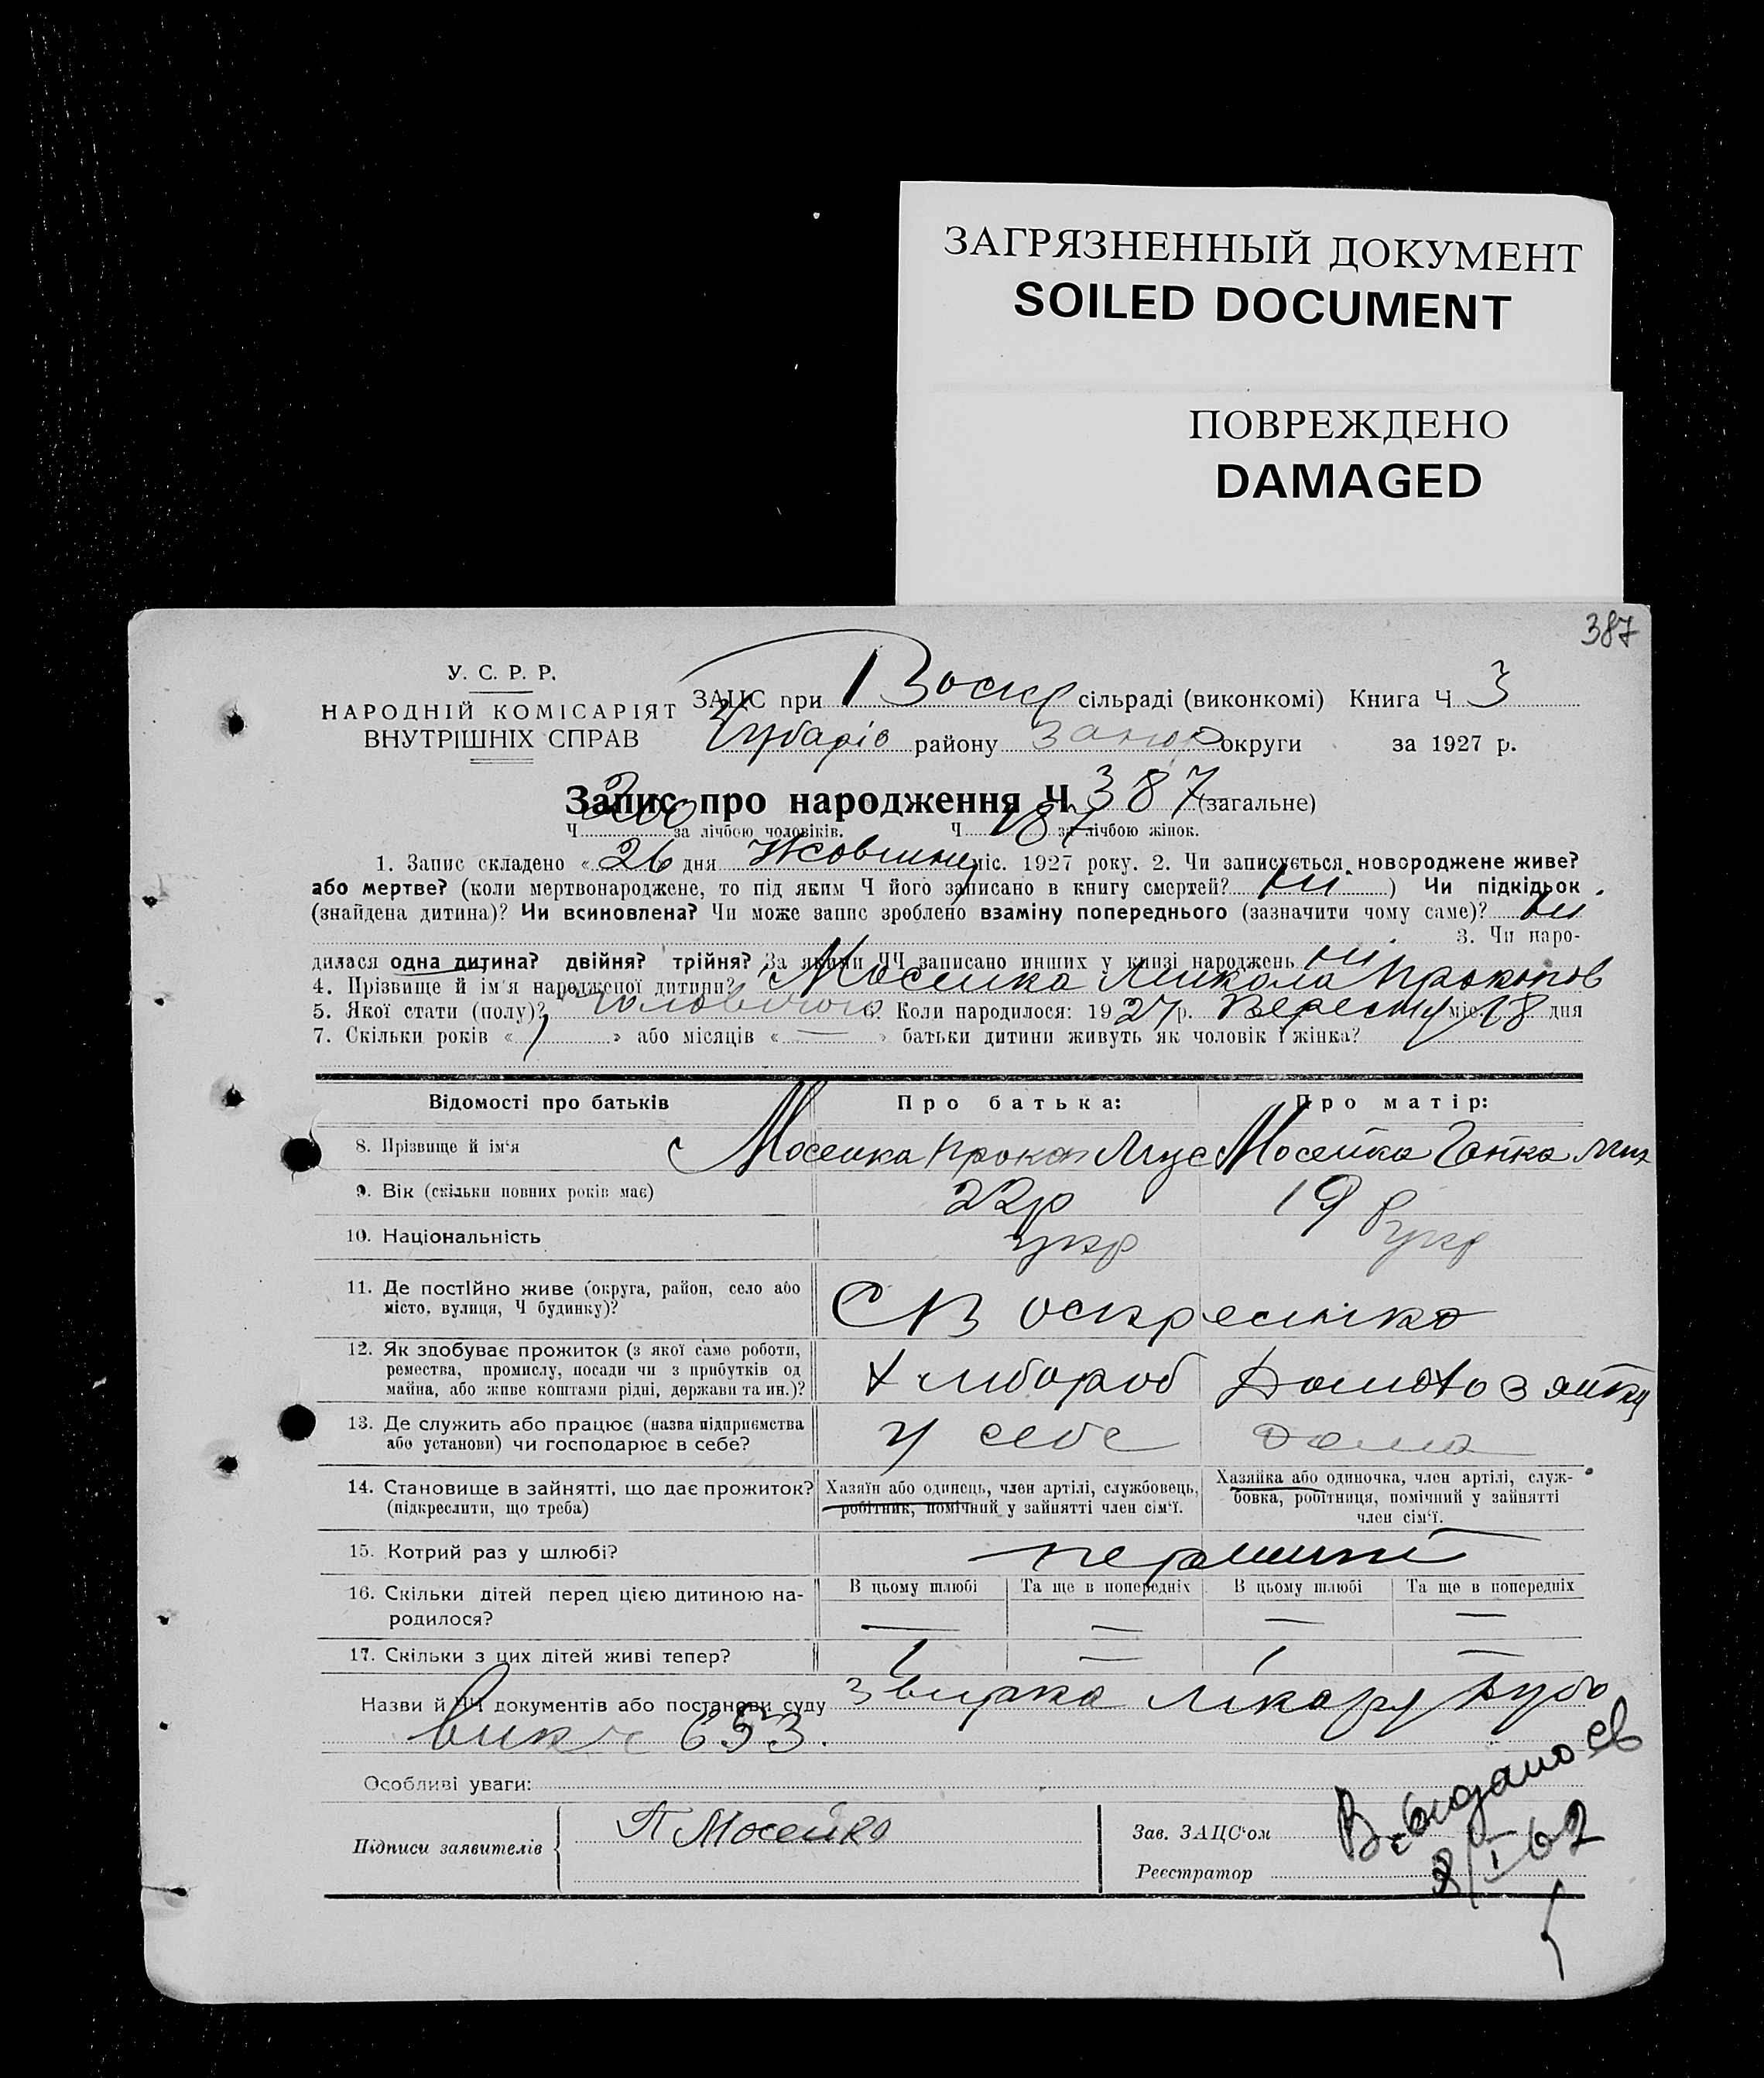 ЗАГРЯЗНЕННЫЙ ДОКУМЕНТ
SOILED DOCUMENT
ПОВРЕЖДЕНО
DAMAGED
387
У. С. Р. Р.
НАРОДНІЙ КОМІСАРІЯТ
ВНУТРІШНІХ СПРАВ
ЗАЦС при Воскр сільраді (виконкомі) Книга Ч 3
Чубарів району Запор округи за 1927 р.
Запис про народження Ч 387 (загальне)
Ч 200 за лічбою чоловіків. Ч 187 за лічбою жінок.
1. Запис складено « 26 дня Жовтня міс. 1927 року. 2. Чи записується новороджене живе?
або мертве? (коли мертвонароджене, то під яким Ч його записано в книгу смертей? ні ) Чи підкідьок
(знайдена дитина)? Чи всиновлена? Чи може запис зроблено взаміну попереднього (зазначити чому саме)? ні
3. Чи наро-
дилася одна дитина? двійня? трійня? За якими ЧЧ записано инших у книзі народжень ні
4. Прізвище й ім'я народженої дитини? Мосейка Микола Прокопов
5. Якої стати (полу)? чоловічого 6. Коли народилося: 1927 р. Вересня міс. 18 дня
7. Скільки років « 1 » або місяців « — » батьки дитини живуть як чоловік і жінка?
Відомості про батьків Про батька: Про матір:
8. Прізвище й ім'я Мосейка Прокоп Мус Мосейка Ганка Мих
9. Вік (скільки повних років має) 22 р 19 р
10. Національність укр укр
11. Де постійно живе (округа, район, село або
місто, вулиця, Ч будинку)?
С Воскресінка
12. Як здобуває прожиток (з якої саме роботи,
ремества, промислу, посади чи з прибутків од
майна, або живе коштами рідні, держави та ин.)?
Хлибороб
13. Де служить або працює (назва підприємства
або установи) чи господарює в себе?
У себе дома
14. Становище в зайнятті, що дає прожиток?
(підкреслити, що треба)
Хазяїн або одинець, член артілі, службовець,
робітник, помічний у зайнятті член сім'ї.
Хазяйка або одиночка, член артілі, служ-
бовка, робітниця, помічний у зайнятті
член сім'ї.
15. Котрий раз у шлюбі? перший
16. Скільки дітей перед цією дитиною на-
родилося?
В цьому шлюбі Та ще в попередніх В цьому шлюбі Та ще в попередніх
— — — —
17. Скільки з цих дітей живі тепер? 1 — 1 —
Назви й ЧЧ документів або постанови суду лікаря
653.
Особливі уваги:
Підписи заявителів П Мосейко
Зав. ЗАЦС'ом
Реєстратор